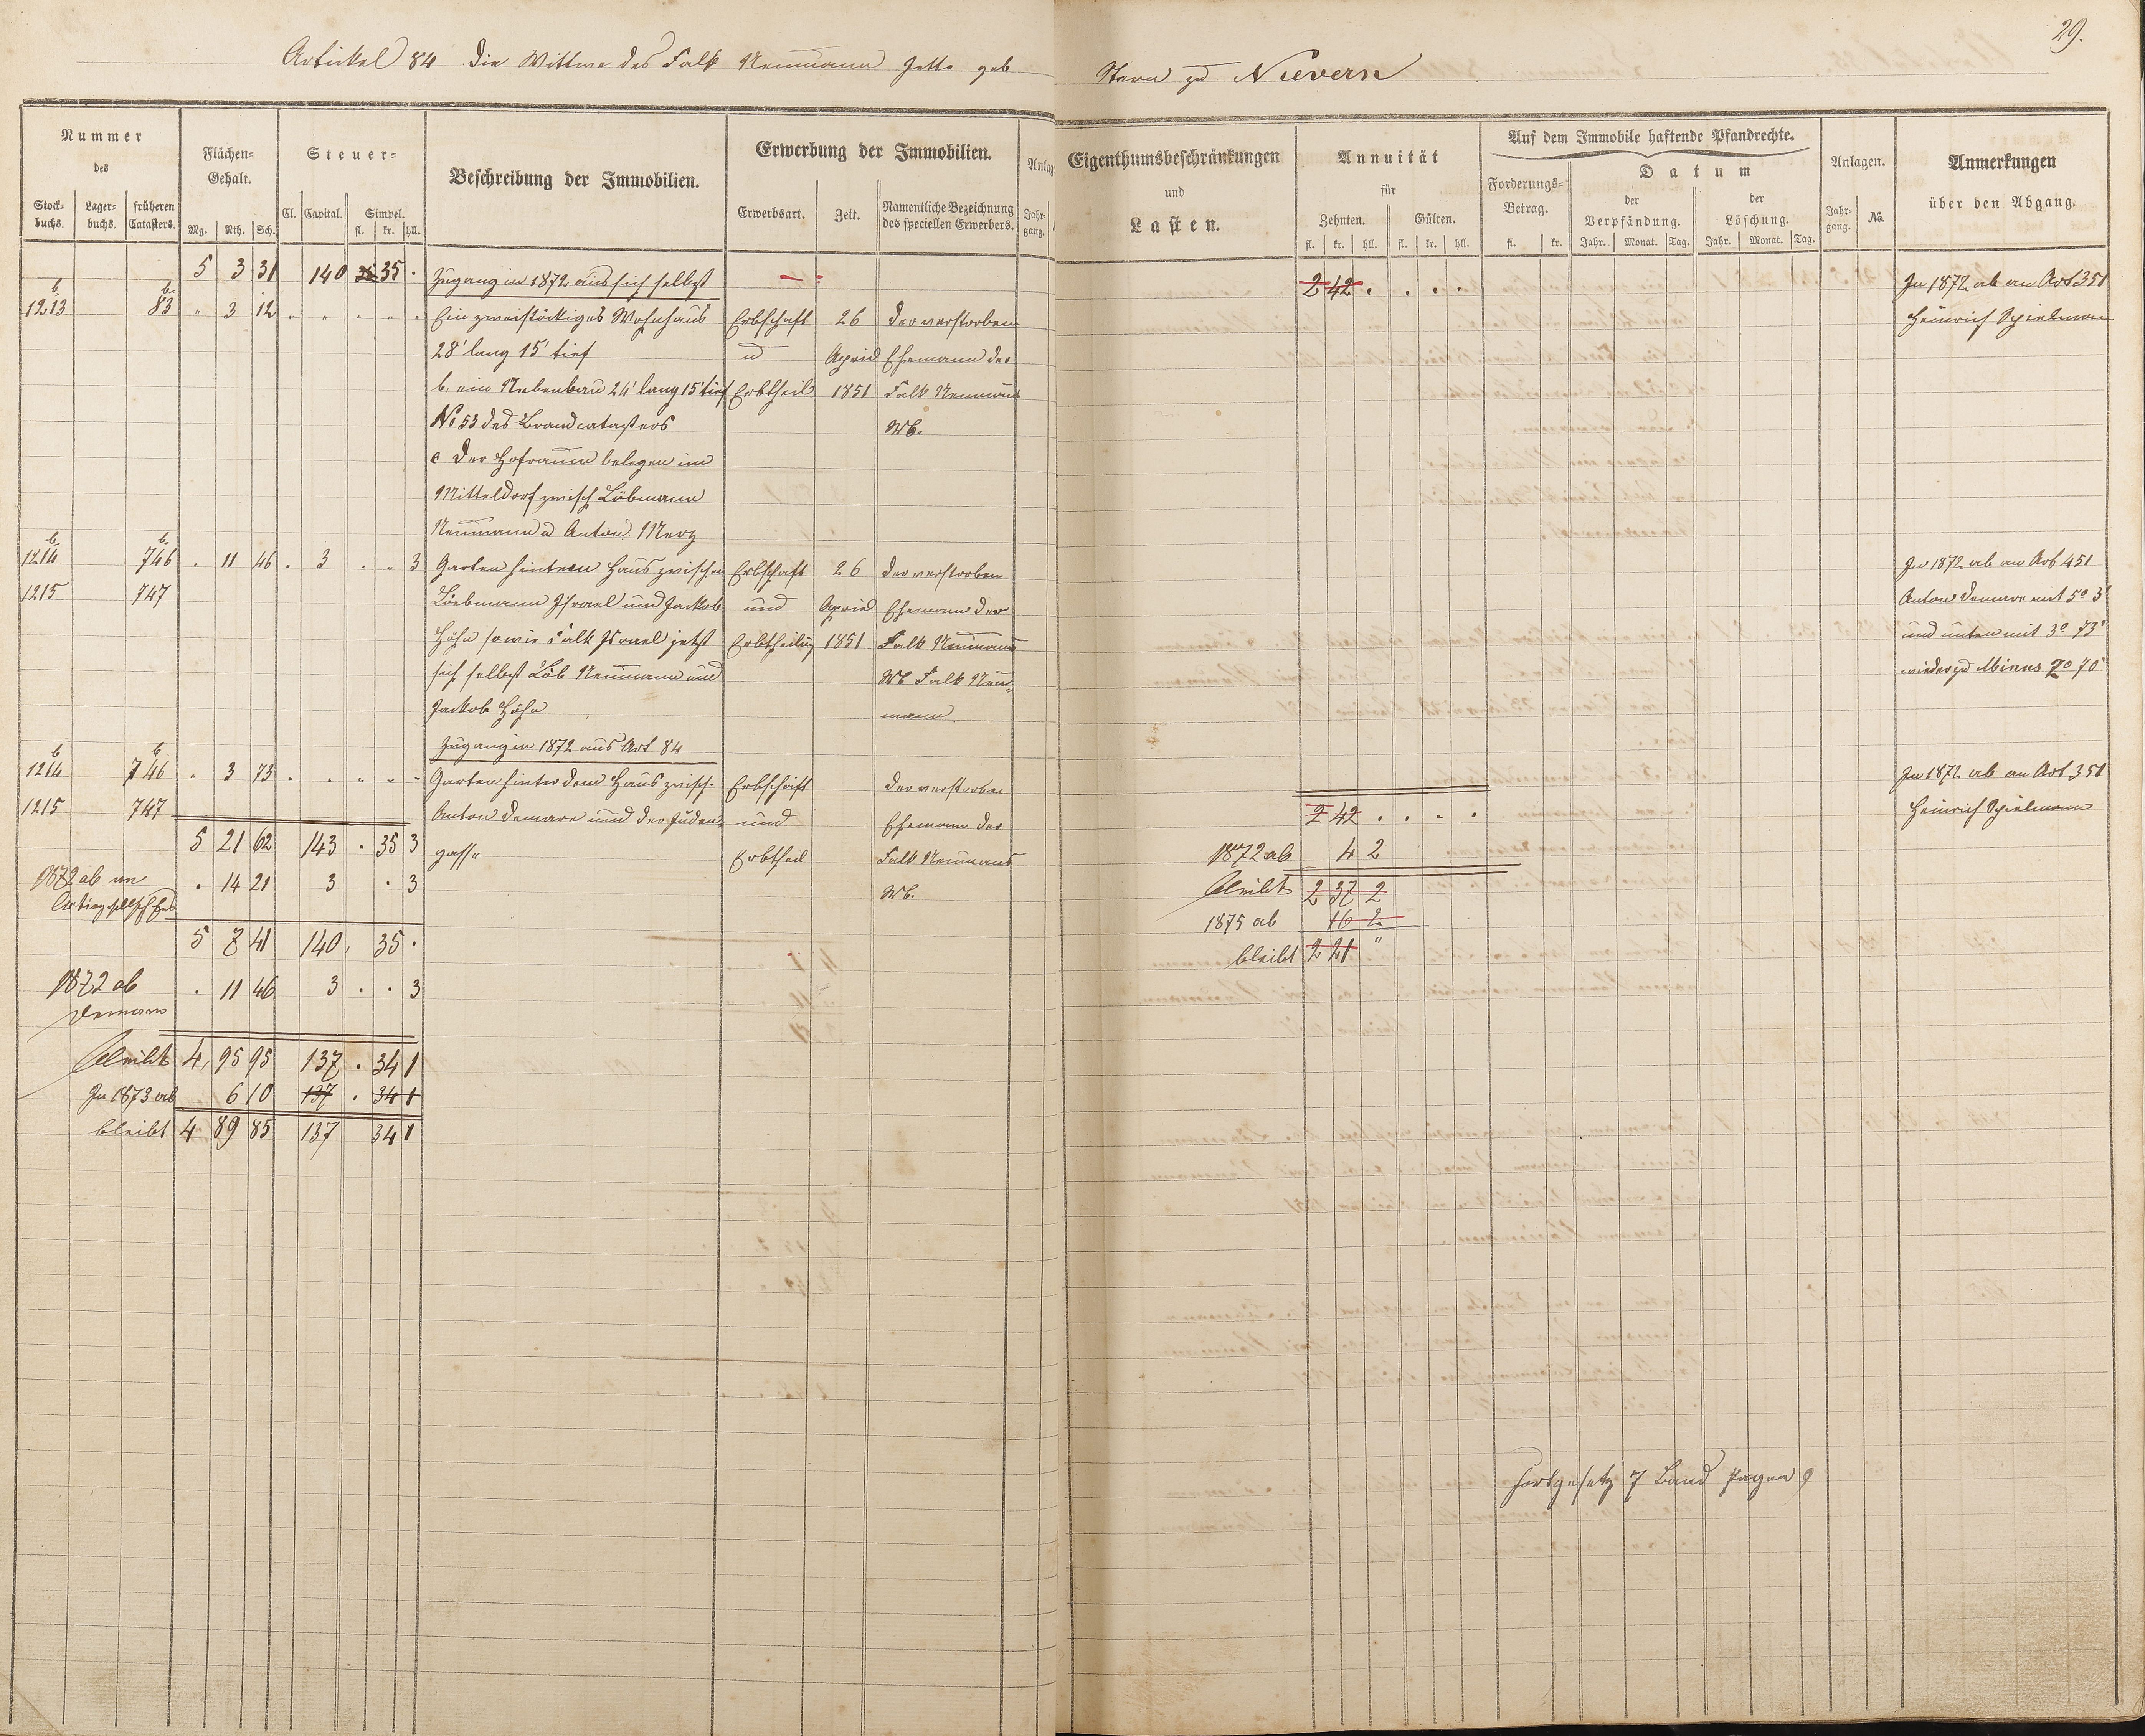 29.
Artickel 84 Die Wittwe des Falk Neumann Jette geb Stern zu Nievern
Nummer des
Stockbuchs. Lagerbuchs. früheren Catasters.
Flächen-Gehalt.
Mg. Rth. Sch.
Steuer-
Cl. Capital. Simpel.
fl. kr. hll.
Beschreibung der Immobilien.
Erwerbung der Immobilien.
Erwerbsart. Zeit. Namentliche Bezeichnung des speciellen Erwerbers.
Anlag
Jahrgang.
Eigenthumsbeschränkungen
und
Lasten.
Annuität
für
Zehnten. Gülten.
fl. kr. hll. fl. kr. hll.
Auf dem Immobile haftende Pfandrechte.
Forderungs-Betrag.
fl. kr.
Datum
der Verpfändung. der Löschung.
Jahr. Monat. Tag. Jahr. Monat. Tag.
Anlagen.
Jahrgang. No.
Anmerkungen
über den Abgang.
5 3 31 140 35 35 . Zugang in 1872 aus sich selbst 2 42 . . . . In 1872 ab an Art 351
b 1213 b 83 " 3 12 Ein zweistöckiges Wohnhaus Erbschaft 26 Der verstorben Heinrich Spielmann
28' lang 15' tief u April Ehemann der
b, ein Nebenbau 24' lang 15' tief Erbtheil 1851 Falk Neumann
No 53 des Brandcatasters Wb.
c Der Hofraum belegen im
Mitteldorf zwisch Löbmann
Neumann u Anton Merz
b 1214 b 746 . 11 46 . 3 . . 3 Garten hintern Haus zwischen Erbschaft 26 Der verstorben In 1872 ab an Art 451
1215 747 Löebmann Israel und Jackob und April Ehemann der Anton Demare mit 5° 3'
Höhn sowie Falk Israel jetzt Erbtheilung 1851 Falk Neumann und unten mit 3° 73'
sich selbst Löb Neumann und Wb Falk Neu- wieder zu Minus 2° 70'
Jackob Höhn mann.
Zugang in 1872 aus Art 84
b 1214 b 746 . 3 73 Garten hinter dem Haus zwisch. Erbschaft Der verstorben In 1872 ab an Art 351
1215 747 Anton Demare und der Juden- und Ehemann der 2 42 . . . . Heinrich Spielmann
5 21 62 143 . 35 3 gasse Erbtheil Falk Neumann 1872 ab 4 2
1872 ab an . 14 21 3 . 3 Wb. bleibt 2 37 2
1875 ab 16 2
5 7 41 140 . 35 . bleibt 2 21 "
1872 ab . 11 46 3 . . 3
Demare
bleibt 4, 95 95 137 . 34 1
In 1873 ab 6 10 137 . 34 1
bleibt 4 89 85 137 34 1
Fortgesetz 7 Band Pagna 9